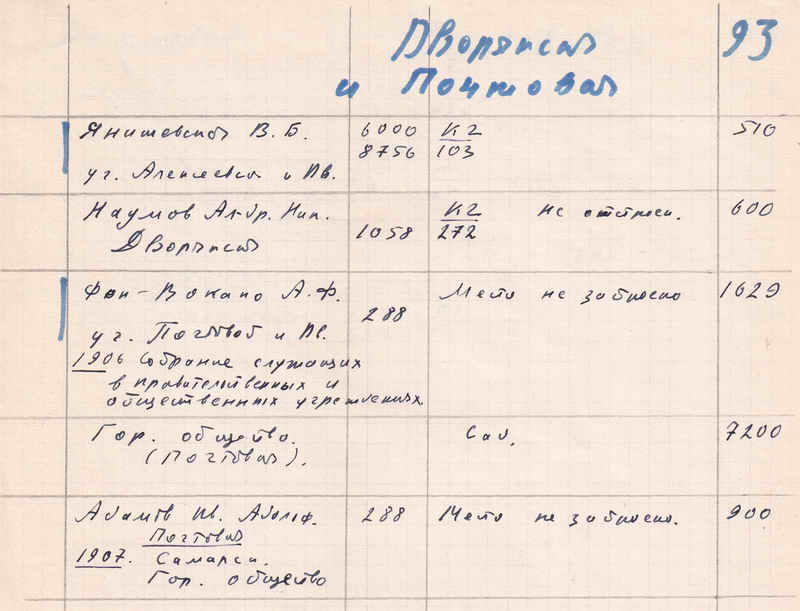 Дворянская 93
и Почтовая
Янишевская В. Б. 6000 К2 510
8756 103
уг. Алексеевск и Дв.
Наумов Ал-др. Ник. К2 не отстроен. 600
Дворянская 1058 272
Фон-Вакано А. Ф. Место не заброено 1629
288
уг. Почтовой и Дв.
1906 Собрание служащих
в правительственных и
общественных учреждениях
Гор. общество. Сад. 7200
(Почтовая).
Адольф. 288 Место не заброено. 900
Почтовая
1907. Самарск.
Гор. общество